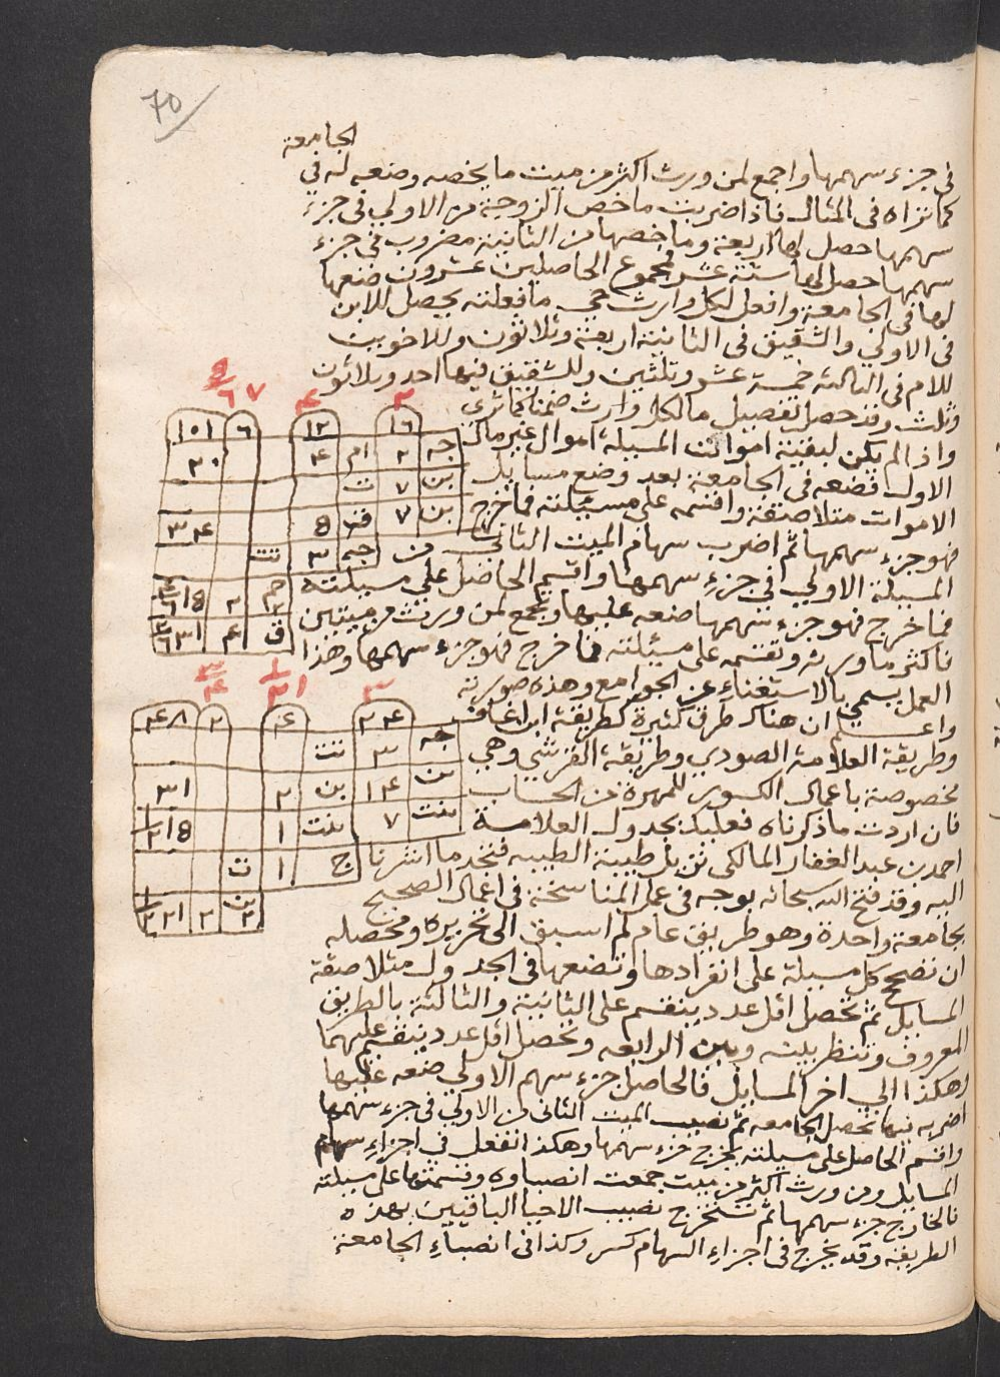 70
الجامعة
في جزء سهمها واجمع لمن ورث اكثر من ميت ما يخصه وضعه له في
كما تراه في المثال فاذا ضربت ما خص الزوجة من الاولي في جزء
سهمها حصل لها اربعة وما خصها من الثانية مضروب في جزء
سهمها حصل لها ستة عشر فمجموع الحاصلين عشرون ضعها
لها في الجامعة وافعل لكل وارث حي ما فعلته يحصل للابن
في الاولي والشقيق في الثانية اربعة وثلاثون وللاخوين
للام في الثالثة خمسة عشر وثلثين وللشقيق فيها احد وثلاثون
وثلث وقد حصل تفصيل ما لكل وارث ضمنا كما ترى
واذا لم يكن لبقية اموات المسيلة اموال غير مال
الاول فضعه في الجامعة بعد وضع مسايل
الاموات متلاصقة واقسمه على مسيلته فما خرج
فهو جزء سهمها ثم اضرب سهام الميت الثاني من
المسيلة الاولي في جزء سهمها واقسم الحاصل على مسيلته
فما خرج فهو جزء سهمها ضعه عليها وتجمع لمن ورث من ميتين
فاكثر ما ورثه وتقسمه على مسئلته فما خرج فهو جزء سهمها وهذا
العمل يسمى بالاستغناء عن الجوامع وهذه صورته
واعلم ان هناك طرق كثيرة كطريقة ابن
وطريقة العلامة الصودي وطريقة القرشي وهي
مخصوصة باعمال الكسور للمهرة من الحساب
فان اردت ما ذكرناه فعليك بجدول العلامة
احمد بن عبد الغفار المالكي نزيل طيبة الطيبه فتجد ما اشرنا
اليه وقد فتح الله سبحانه بوجه في عمل المناسخة في اعمال الصحيح
بجامعة واحدة وهو طريق عام لم اسبق الى تحريره ومحصله
ان تصحح كل مسيلة على انفرادها وتضعها في الجدول متلاصقة
المسايل ثم تحصل اقل عدد ينقسم على الثانية والثالثة بالطريق
المعروف وتنظر بينه وبين الرابعه وتحصل اقل عدد ينقسم عليهما
وهكذا الي اخر المسايل فالحاصل جزء سهم الاولي ضعه عليها
اضربه فيها تحصل الجامعه ثم نصيب الميت الثاني من الاولي في جزء سهمها
واقسم الحاصل على مسيلته يخرج جزء سهمها وهكذا تفعل في اجزاء سهام
المسايل ومن ورث اكثر من ميت جمعت انصباوه وقسمتها على مسيلته
فالخارج جزء سهمها ثم تستخرج نصيب الاحيا الباقيين بهذه
الطريقة وقد يخرج في اجزاء السهام كسر وكذا في انصباء الجامعة
٢ ٤ ٧
١٦ ١٢ ٦ ١٠١
جه ٢ ام ٤ ٢٠
بن ٧ ت
بن ٧ ق ٥ ٣٤
جه ٣ تت
٢ ١٥
ق ٤ ٣١
٣
٢٤ ٤ ٢
جه ٣ تت
بن ١٤ بن ٢ ٣١
بنت ٧ بنت ١ ١٥
ج ١ ت
بن ٢